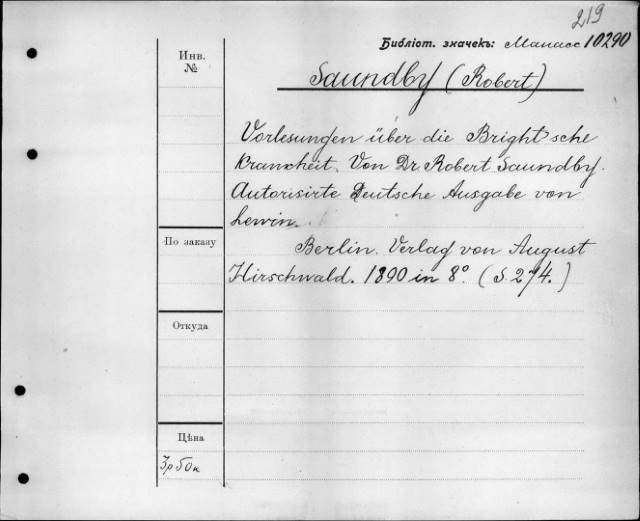 219
Библіот. значекъ: Манасс 10290
Инв.
№
Saundby (Robert)
Vorlesungen über die Bright'sche
Krancheit. Von Dr Robert Saundby.
Autorisirte Deutsche Ausgabe von
Lewin.
По заказу
Berlin. Verlag von August
Hirschwald. 1890 in 8° (S. 274.)
Откуда
Цѣна
3р 50к